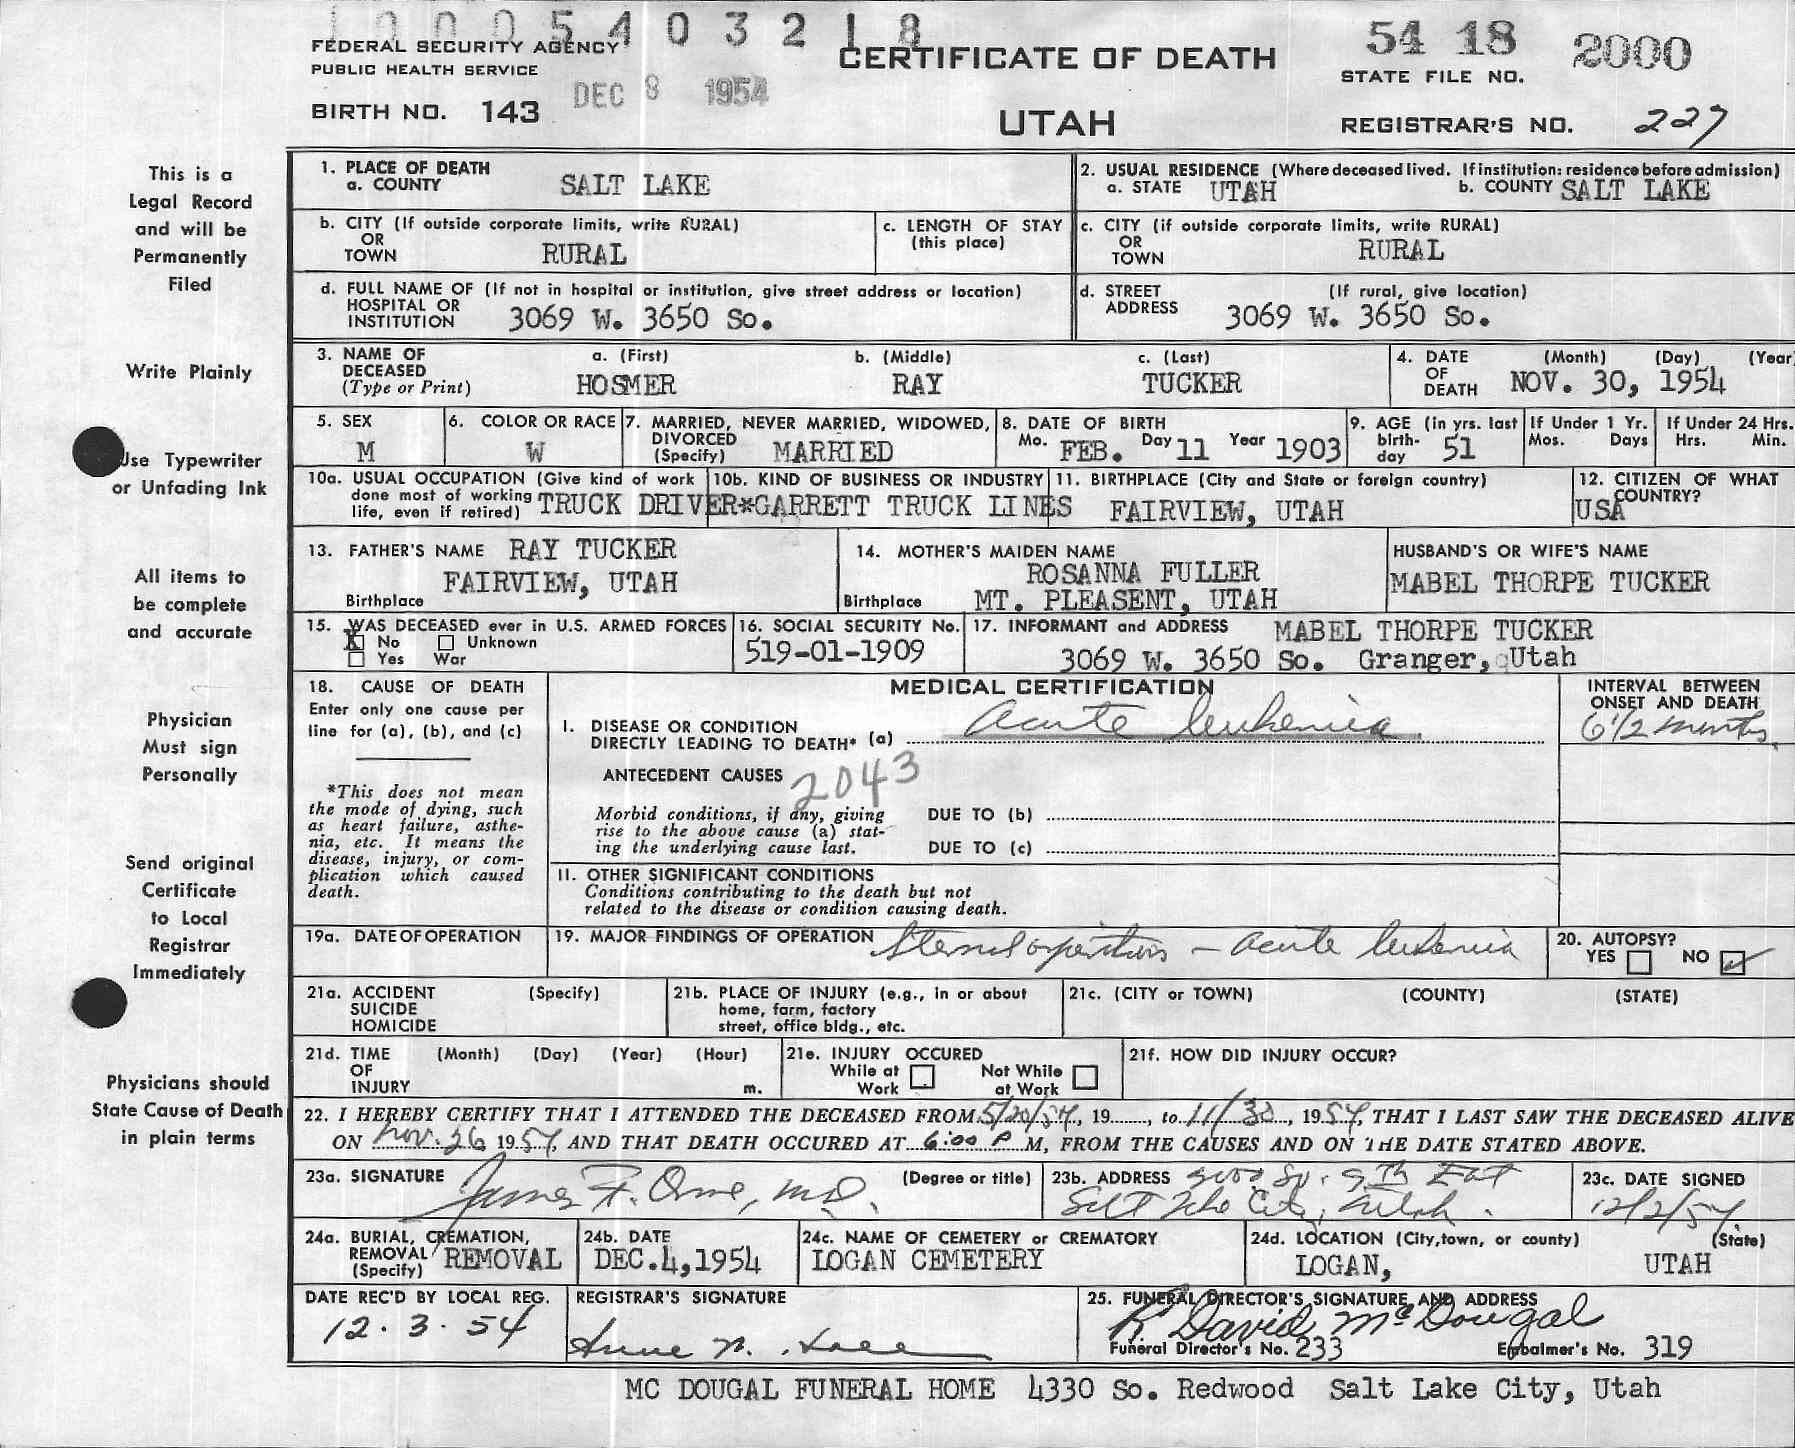 1 0 0 0 5 4 0 3 2 1 8
FEDERAL SECURITY AGENCY
PUBLIC HEALTH SERVICE
BIRTH NO. 143
DEC 8 1954
CERTIFICATE OF DEATH
UTAH
54 18 2000
STATE FILE NO.
REGISTRAR'S NO. 227
This is a
Legal Record
and will be
Permanently
Filed
Write Plainly
Use Typewriter
or Unfading Ink
All items to
be complete
and accurate
Physician
Must sign
Personally
Send original
Certificate
to Local
Registrar
Immediately
Physicians should
State Cause of Death
in plain terms
1. PLACE OF DEATH
a. COUNTY SALT LAKE
2. USUAL RESIDENCE (Where deceased lived. If institution: residence before admission)
a. STATE UTAH b. COUNTY SALT LAKE
b. CITY (If outside corporate limits, write RURAL)
OR
TOWN RURAL
c. LENGTH OF STAY
(this place)
c. CITY (if outside corporate limits, write RURAL)
OR
TOWN RURAL
d. FULL NAME OF (If not in hospital or institution, give street address or location)
HOSPITAL OR
INSTITUTION 3069 W. 3650 So.
d. STREET (If rural, give location)
ADDRESS 3069 W. 3650 So.
3. NAME OF
DECEASED
(Type or Print)
a. (First) b. (Middle) c. (Last)
HOSMER RAY TUCKER
4. DATE (Month) (Day) (Year
OF
DEATH NOV. 30, 1954
5. SEX
M
6. COLOR OR RACE
W
7. MARRIED, NEVER MARRIED, WIDOWED,
DIVORCED
(Specify) MARRIED
8. DATE OF BIRTH
Mo. FEB. Day 11 Year 1903
9. AGE (in yrs. last
birth-
day 51
If Under 1 Yr.
Mos. Days
If Under 24 Hrs.
Hrs. Min.
10a. USUAL OCCUPATION (Give kind of work
done most of working
life, even if retired) TRUCK DRIVER*
10b. KIND OF BUSINESS OR INDUSTRY
GARRETT TRUCK LINES
11. BIRTHPLACE (City and State or foreign country)
FAIRVIEW, UTAH
12. CITIZEN OF WHAT
COUNTRY?
USA
13. FATHER'S NAME RAY TUCKER
FAIRVIEW, UTAH
Birthplace
14. MOTHER'S MAIDEN NAME
ROSANNA FULLER
Birthplace MT. PLEASENT, UTAH
HUSBAND'S OR WIFE'S NAME
MABEL THORPE TUCKER
15. WAS DECEASED ever in U.S. ARMED FORCES
X No Unknown
Yes War
16. SOCIAL SECURITY No.
519-01-1909
17. INFORMANT and ADDRESS MABEL THORPE TUCKER
3069 W. 3650 So. Granger, Utah
18. CAUSE OF DEATH
Enter only one cause per
line for (a), (b), and (c)
*This does not mean
the mode of dying, such
as heart failure, asthe-
nia, etc. It means the
disease, injury, or com-
plication which caused
death.
MEDICAL CERTIFICATION
I. DISEASE OR CONDITION
DIRECTLY LEADING TO DEATH* (a) Acute leukemia
INTERVAL BETWEEN
ONSET AND DEATH
6 1/2 months
ANTECEDENT CAUSES 2043
Morbid conditions, if any, giving
rise to the above cause (a) stat-
ing the underlying cause last.
DUE TO (b)
DUE TO (c)
II. OTHER SIGNIFICANT CONDITIONS
Conditions contributing to the death but not
related to the disease or condition causing death.
19a. DATE OF OPERATION
19. MAJOR FINDINGS OF OPERATION Sternal aspirations - acute leukemia
20. AUTOPSY?
YES NO ✓
21a. ACCIDENT (Specify)
SUICIDE
HOMICIDE
21b. PLACE OF INJURY (e.g., in or about
home, farm, factory
street, office bldg., etc.
21c. (CITY or TOWN) (COUNTY) (STATE)
21d. TIME (Month) (Day) (Year) (Hour)
OF
INJURY m.
21e. INJURY OCCURED
While at Not While
Work at Work
21f. HOW DID INJURY OCCUR?
22. I HEREBY CERTIFY THAT I ATTENDED THE DECEASED FROM 5/20/54, 19...., to 11/30, 1954, THAT I LAST SAW THE DECEASED ALIVE
ON Nov. 26 1954, AND THAT DEATH OCCURED AT 6:00 P M, FROM THE CAUSES AND ON THE DATE STATED ABOVE.
23a. SIGNATURE James F. Orme, M.D. (Degree or title)
23b. ADDRESS So. 9th East
Salt Lake City, Utah.
23c. DATE SIGNED
12/2/54
24a. BURIAL, CREMATION,
REMOVAL
(Specify) REMOVAL
24b. DATE
DEC.4,1954
24c. NAME OF CEMETERY or CREMATORY
LOGAN CEMETERY
24d. LOCATION (City,town, or county) (State)
LOGAN, UTAH
DATE REC'D BY LOCAL REG.
12.3.54
REGISTRAR'S SIGNATURE
Anne
25. FUNERAL DIRECTOR'S SIGNATURE AND ADDRESS
R David McDougal
Funeral Director's No. 233 Embalmer's No. 319
MC DOUGAL FUNERAL HOME 4330 So. Redwood Salt Lake City, Utah